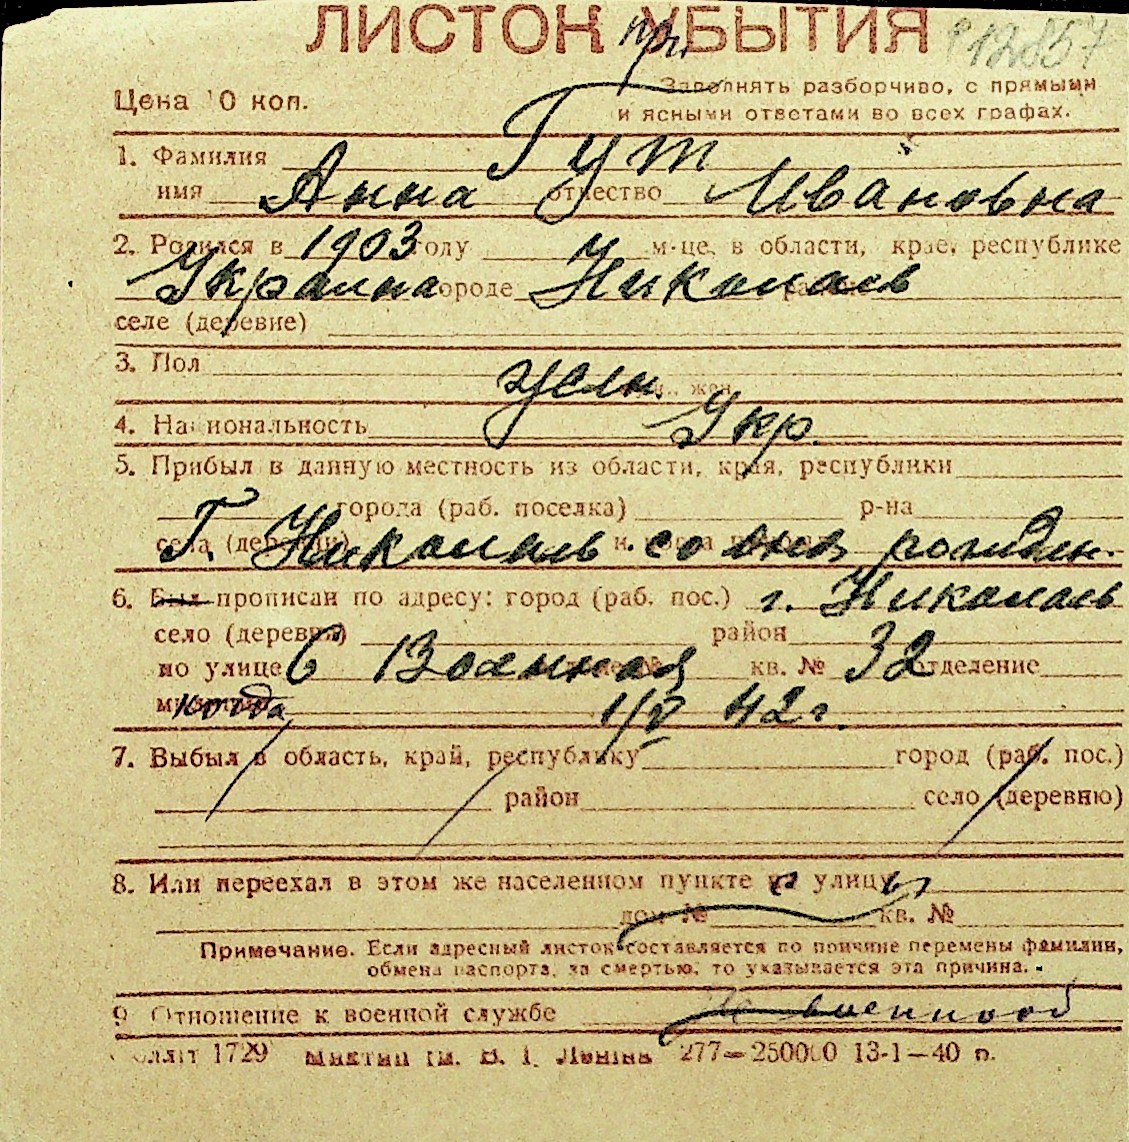 ЛИСТОК УБЫТИЯ
при
12857
Цена 10 коп.
Заполнять разборчиво, с прямыми
и ясными ответами во всех графах.
1. Фамилия Гут
имя Анна отчество Ивановна
2. Родился в 1903 году м-це, в области, крае, республике
Украина городе Николаев
селе (деревне)
3. Пол жен. жен
4. Национальность Укр.
5. Прибыл в данную местность из области, края, республики
города (раб. поселка) р-на
села (деревни) Г. Николаев со дня рожден.
6. Был прописан по адресу: город (раб. пос.) г. Николаев
село (деревня) район
по улице 6 Военная кв. № 32 отделение
милиции когда 1/V 42 г.
7. Выбыл в область, край, республику город (раб. пос.)
район село (деревню)
8. Или переехал в этом же населенном пункте на улицу
дом № кв. №
Примечание. Если адресный листок составляется по причине перемены фамилии,
обмена паспорта, за смертью, то указывается эта причина.
9 Отношение к военной службе
1729 им. В. І. Леніна 277—250000 13-1—40 р.